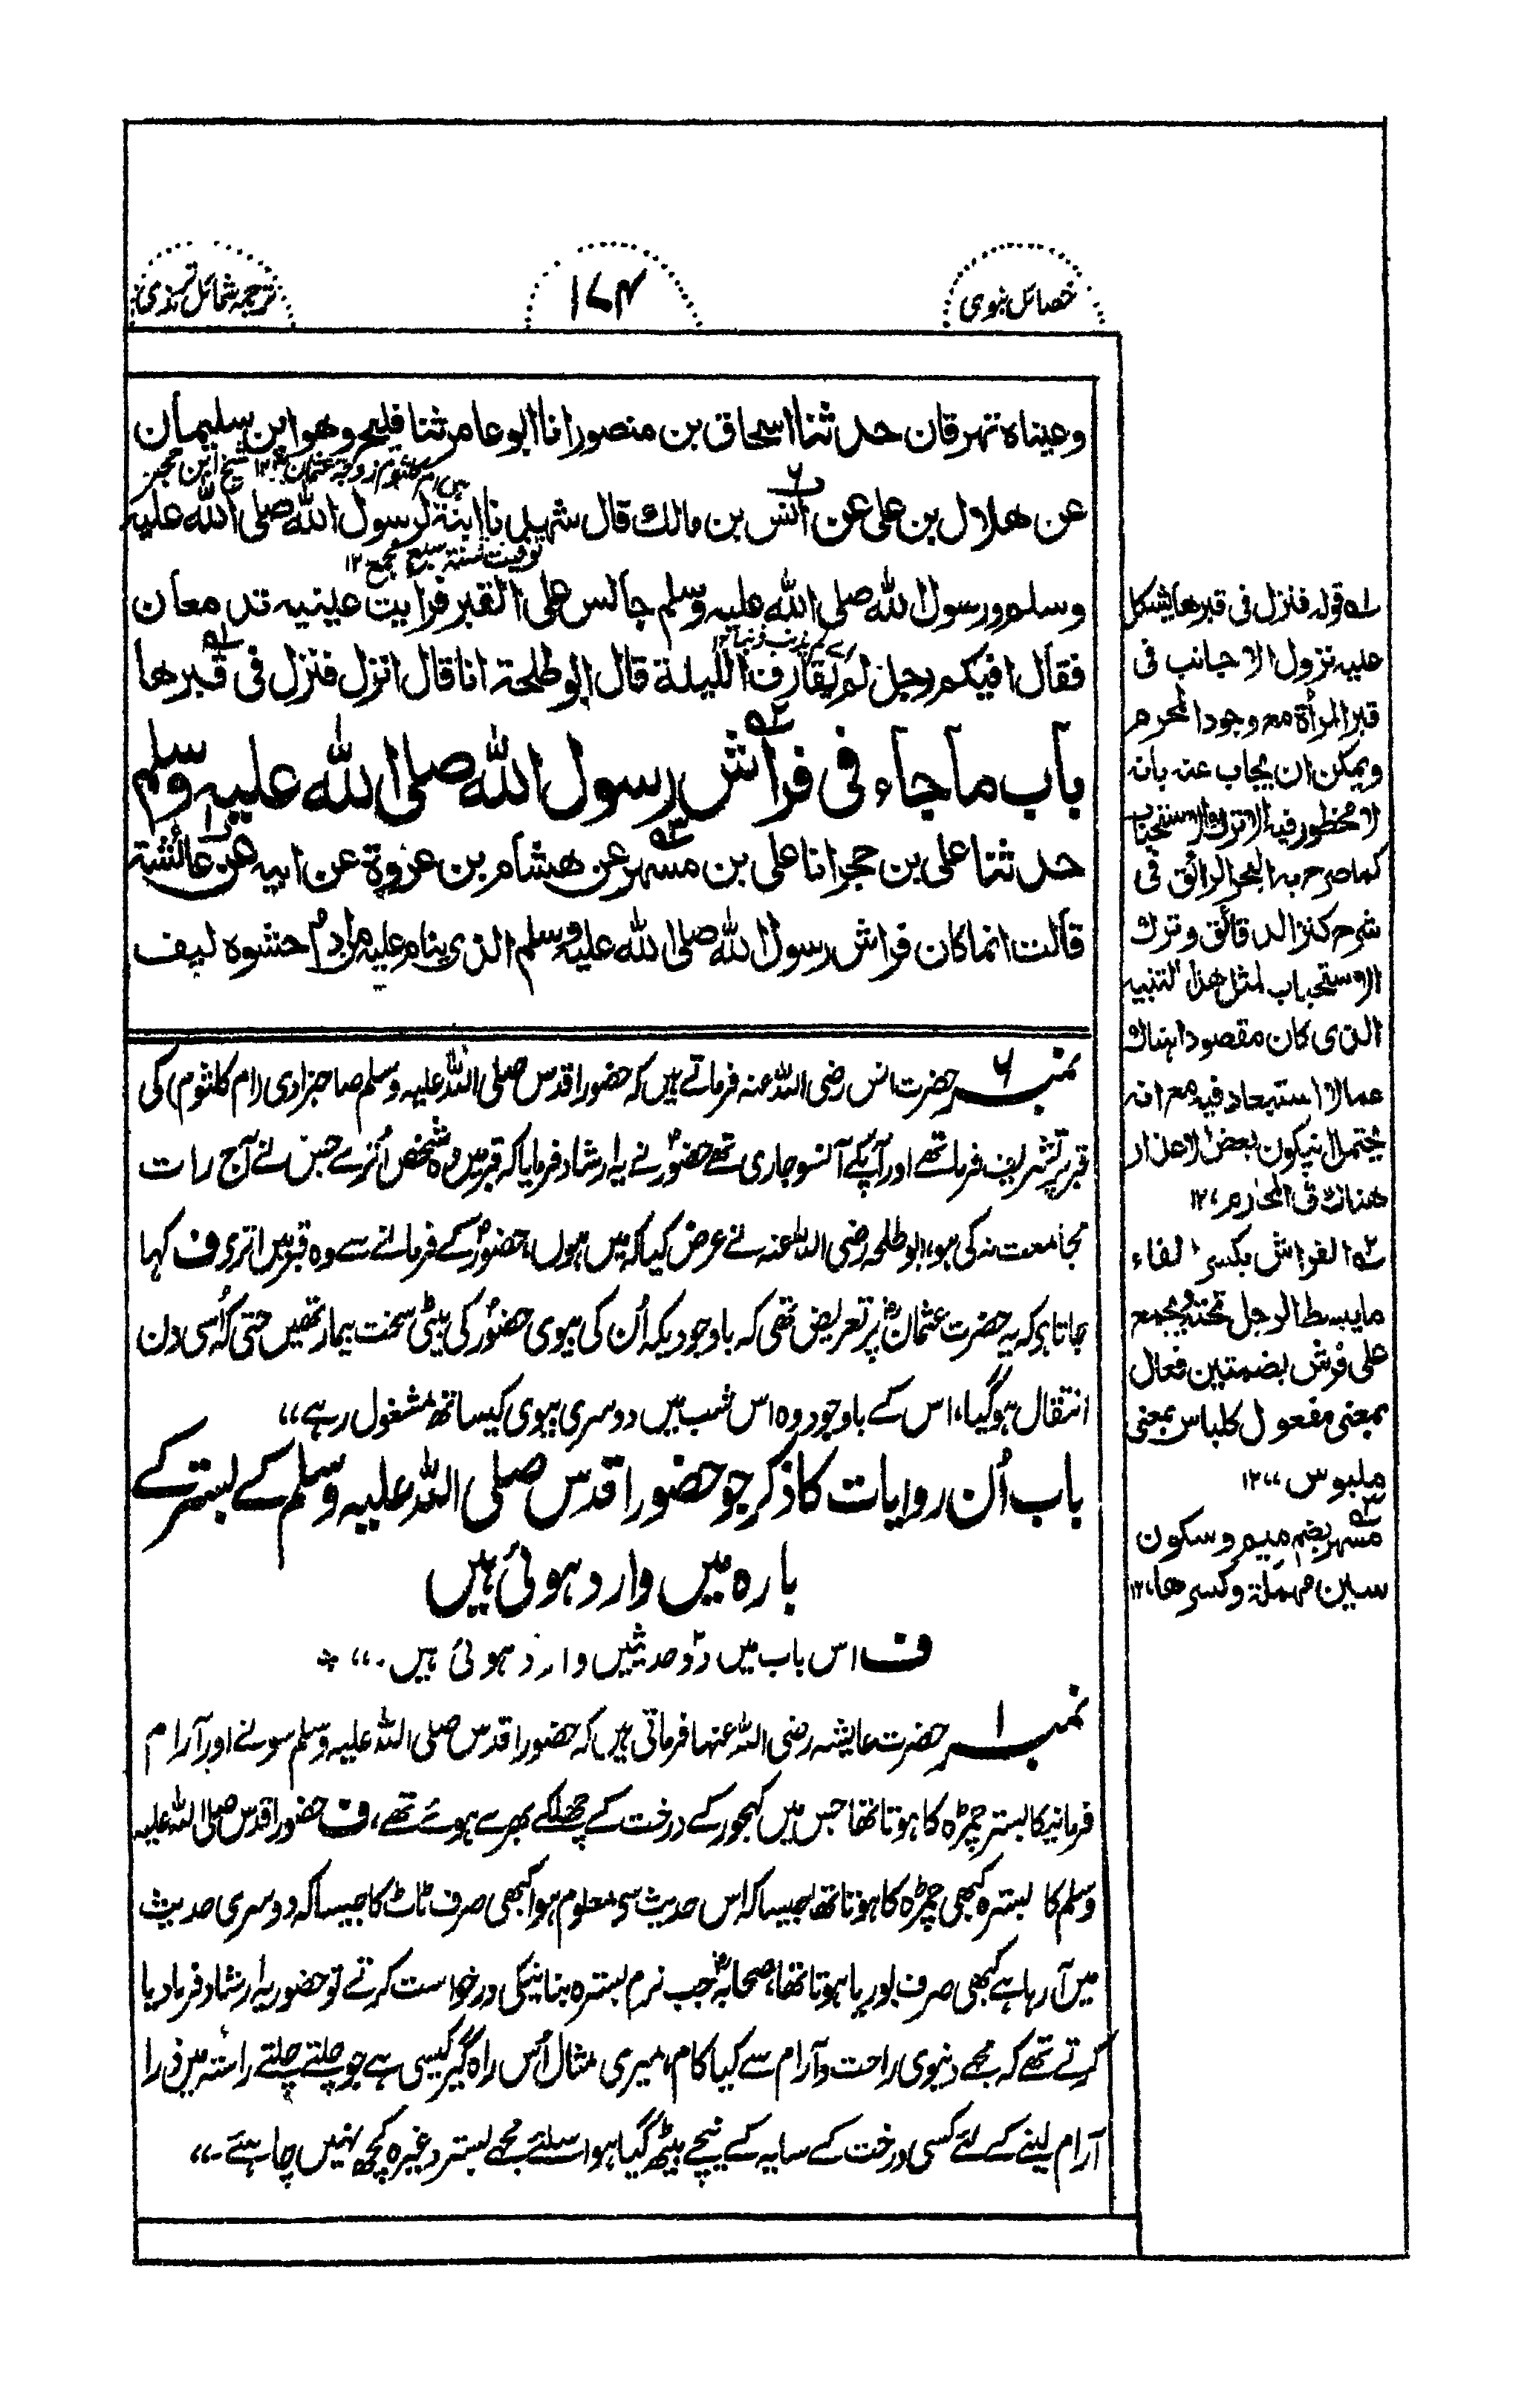 خصائل نبوی
۱۷۴
ترجمہ شمائل ترمذی
وعیناہ تہرقان حدثنا اسحاق بن منصور انا ابو عامر ثنا فلیح وھو ابن سلیمان
ہی ام کلثوم زوجۃ عثمان ۱۲ شیخ ابن حجر
۶
عن ھلال بن علی عن انس بن مالک قال شہدنا ابنۃ لرسول اللہ صلی اللہ علیہ
توفیت سنۃ سبع جمع ۱۲
وسلم ورسول اللہ صلی اللہ علیہ وسلم جالس علی القبر فرایت عینیہ تدمعان
فقال افیکم رجل لم یقارف اللیلۃ قال ابو طلحۃ انا قال انزل فنزل فی قبرھا
باب ما جاء فی فراش رسول اللہ صلی اللہ علیہ وسلم
حدثنا علی بن حجر انا علی بن مسہر عن ھشام بن عروۃ عن ابیہ عن عائشۃ
قالت انما کان فراش رسول اللہ صلی اللہ علیہ وسلم الذی ینام علیہ من ادم حشوہ لیف
نمبر ۶ حضرت انس رضی اللہ عنہ فرماتے ہیں کہ حضور اقدس صلی اللہ علیہ وسلم صاحبزادی (ام کلثوم) کی
قبر پر تشریف فرما تھے اور آپکے آنسو جاری تھے حضورؐ نے یہ ارشاد فرمایا کہ قبر میں وہ شخص اُترے جس نے آج رات
مجامعت نہ کی ہو، ابو طلحہ رضی اللہ عنہ نے عرض کیا کہ میں ہوں، حضورؐ کے فرمانے سے وہ قبر میں اترے ف کہا
جاتا ہو کہ یہ حضرت عثمانؓ پر تعریض تھی کہ باوجود یکہ اُن کی بیوی حضورؐ کی بیٹی سخت بیمار تھیں حتی کہ اُسی دن
انتقال ہوگیا، اس کے باوجود وہ اس شب میں دوسری بیوی کیساتھ مشغول رہے،،
باب اُن روایات کا ذکر جو حضور اقدس صلی اللہ علیہ وسلم کے بستر کے
بارہ میں وارد ہوئی ہیں
ف اس باب میں دو۲ حدیثیں وارد ہوئی ہیں۔،،
نمبر ۱ حضرت عایشہ رضی اللہ عنہا فرماتی ہیں کہ حضور اقدس صلی اللہ علیہ وسلم سونے اور آرام
فرمانیکا بستر چمڑہ کا ہوتا تھا جس میں کھجور کے درخت کے چھلکے بھرے ہوئے تھے، ف حضور اقدس صلی اللہ علیہ
وسلم کا بسترہ کبھی چمڑہ کا ہوتا تھا جیسا کہ اس حدیث سے معلوم ہوا کبھی صرف ٹاٹ کا جیسا کہ دوسری حدیث
میں آرہا ہے کبھی صرف بوریا ہوتا تھا، صحابہؓ جب نرم بسترہ بنانیکی درخواست کرتے تو حضور یہ ارشاد فرما دیا
کرتے تھے کہ مجھے دنیوی راحت وآرام سے کیا کام، میری مثال اُس راہ گیر کیسی ہے جو چلتے چلتے راستہ میں ذرا
آرام لینے کے لئے کسی درخت کے سایہ کے نیچے بیٹھ گیا ہو اسلئے مجھے بستر وغیرہ کچھ نہیں چاہئے۔،،
لہ قولہ فنزل فی قبرھا یشکل
علیہ نزول الاجانب فی
قبر المرأۃ مع وجود المحرم
ویمکن ان یجاب عنہ بانہ
لا محظور فیہ الا ترک الاستحباب
کما صرح بہ البحر الرائق فی
شرح کنز الدقائق وترک
الاستحباب لمثل ھذا التنبیہ
الذی کان مقصودا ہناک
عما لا استبعاد فیہ مع انہ
یحتمل ان یکون بعض الاعذار
ھناک فی المحارم ۱۲
۲ہ الفراش بکسر الفاء
مایبسط الرجل تحتہ ویجمع
علی فرش بضمتین فعال
بمعنی مفعول کلباس بمعنی
ملبوس ،، ۱۲
۳ہ مسہر بضم میم وسکون
سین مہملۃ وکسر ھا، ۱۲